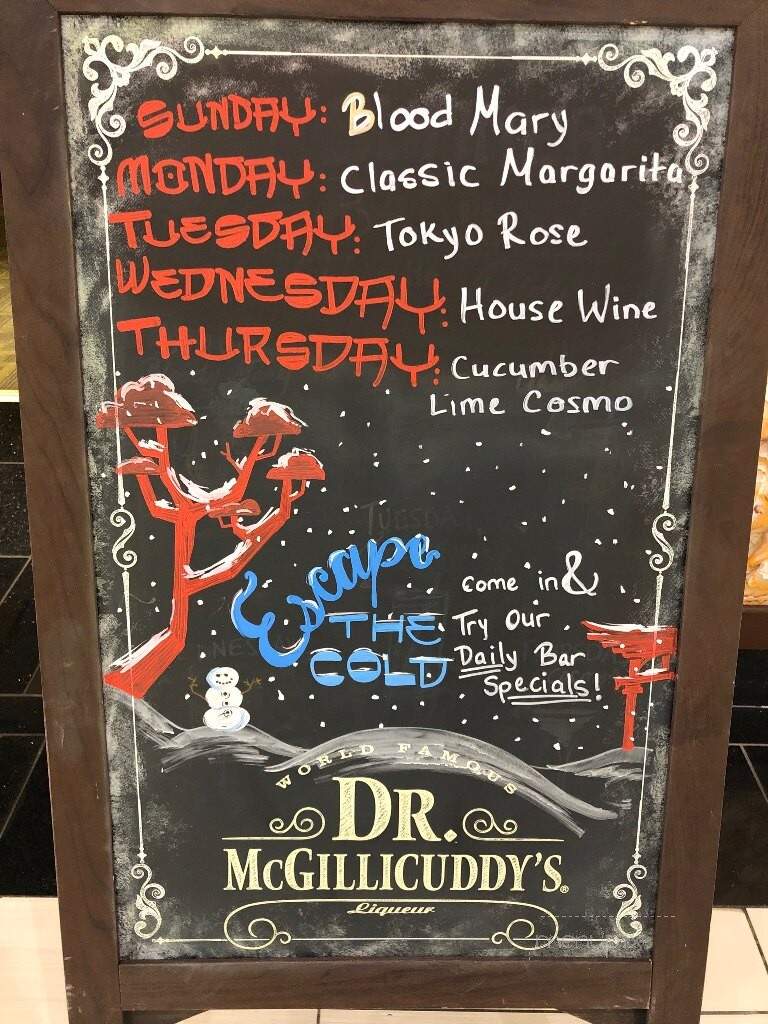 SUNDAY: Blood Mary
MONDAY: Classic Margarita
TUESDAY: Tokyo Rose
WEDNESDAY: House Wine
THURSDAY: Cucumber
Lime Cosmo
Escape
THE
COLD
come in &
Try Our
Daily Bar
Specials!
WORLD FAMOUS
DR.
McGILLICUDDY'S®
Liqueur